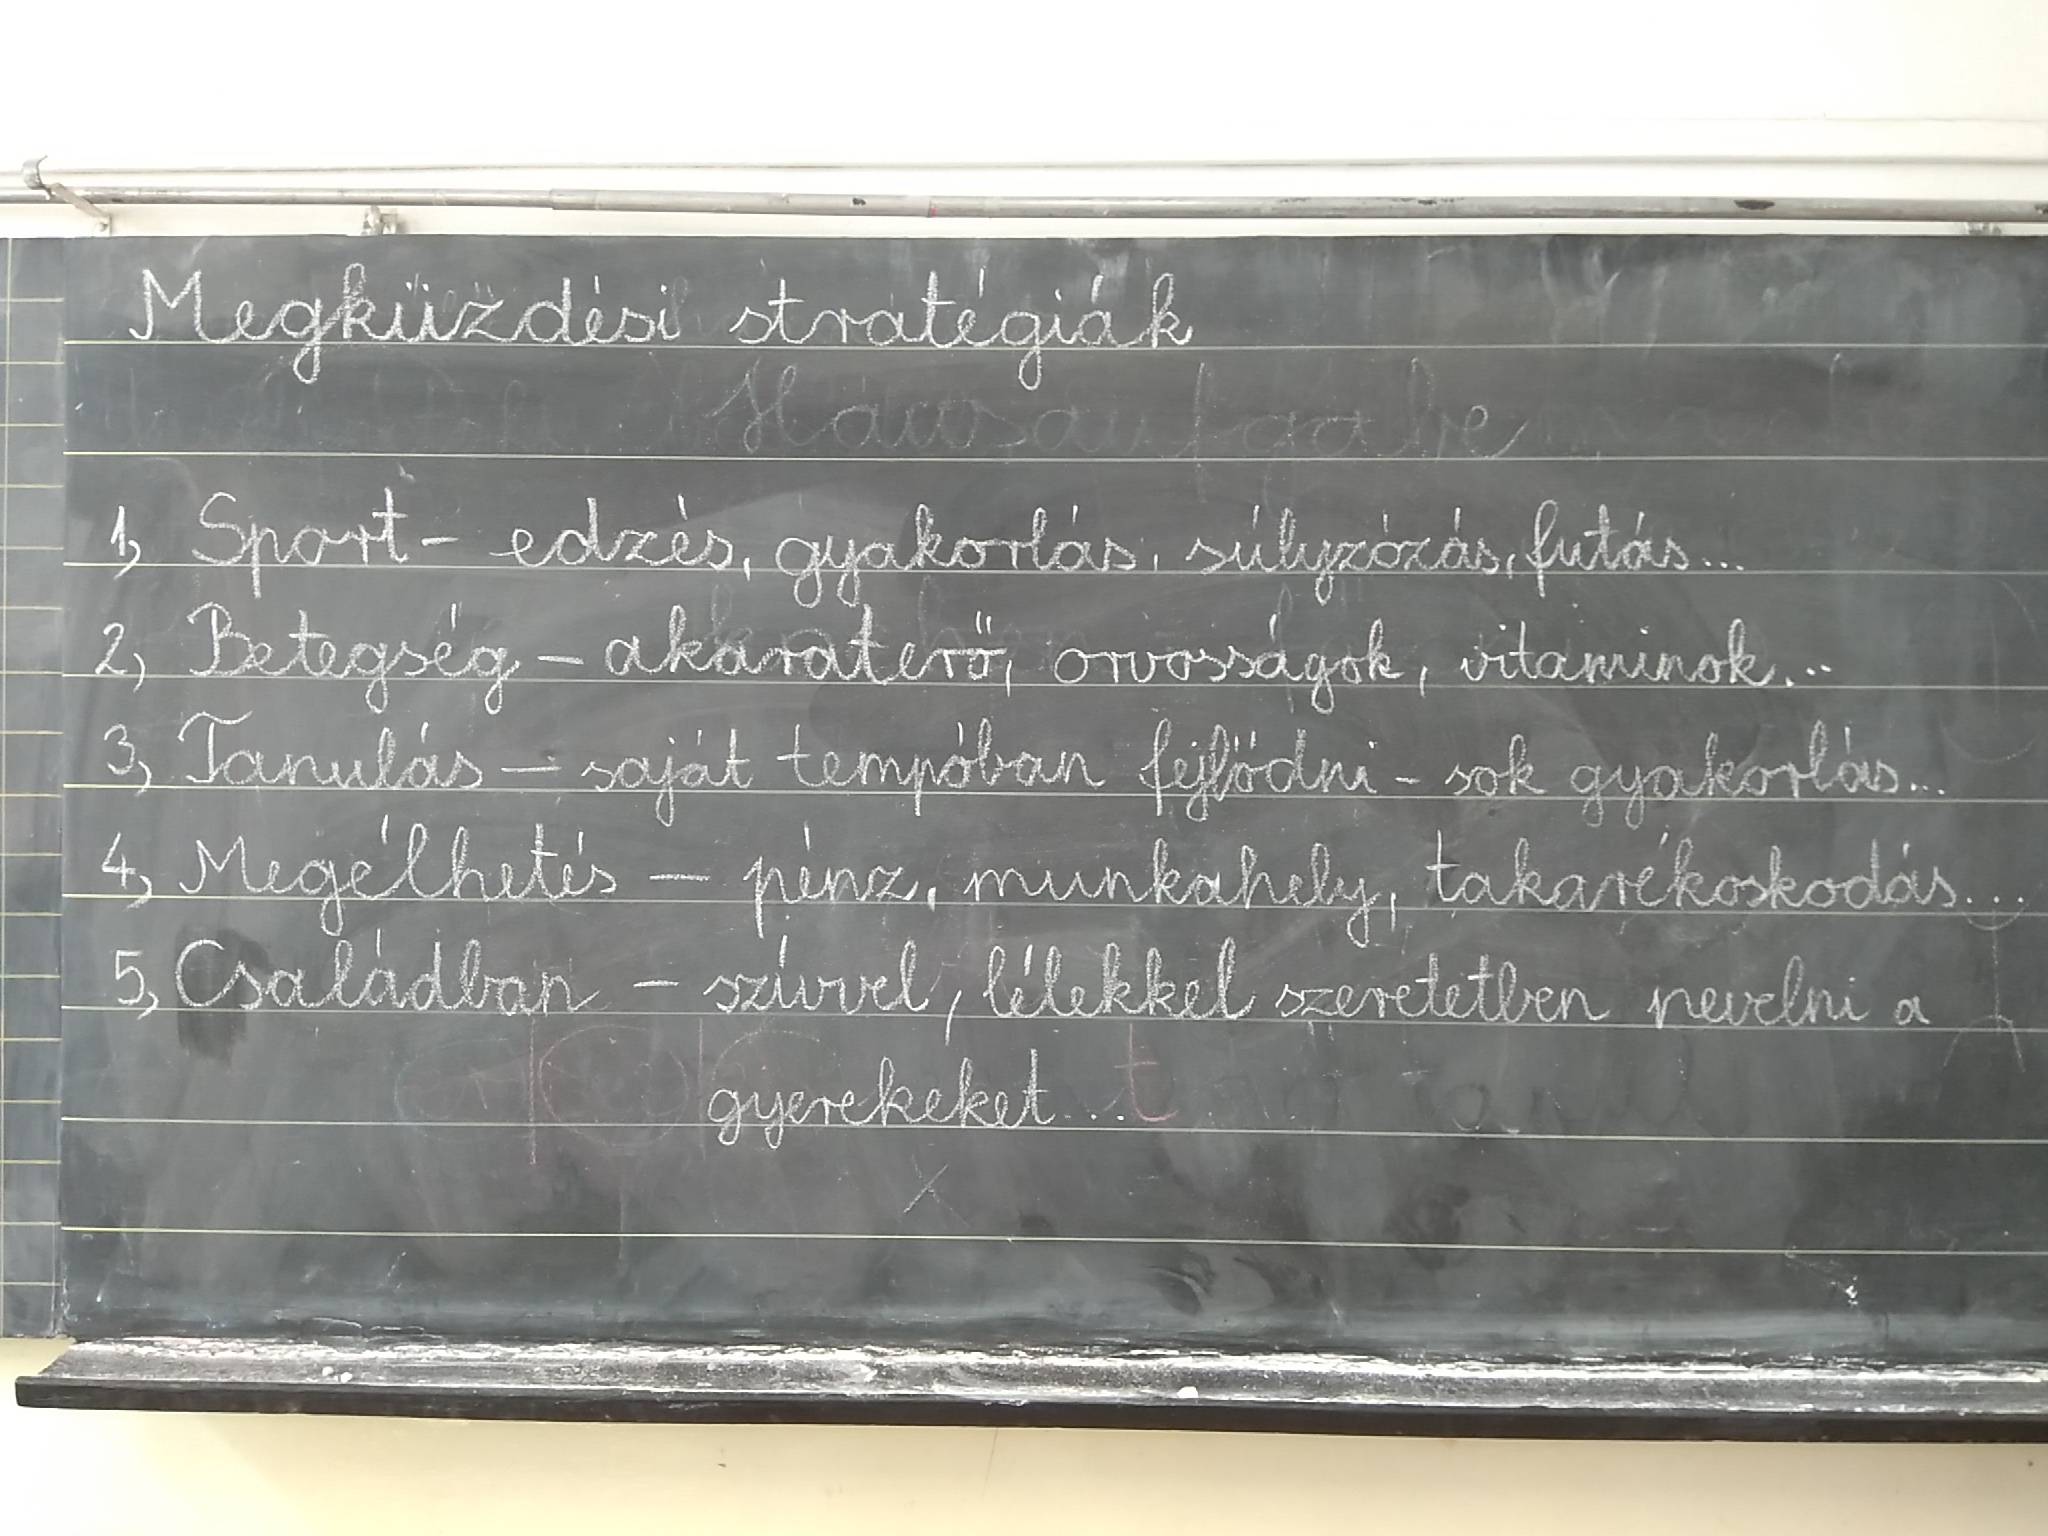 Megküzdési stratégiák
Hausaufgabe
1, Sport - edzés, gyakorlás, súlyzózás, futás...
2, Betegség - akaraterő, orvosságok, vitaminok...
3, Tanulás - saját tempóban fejlődni - sok gyakorlás...
4, Megélhetés - pénz, munkahely, takarékoskodás...
5, Családban - szívvel, lélekkel szeretetben nevelni a
gyerekeket...
t
x